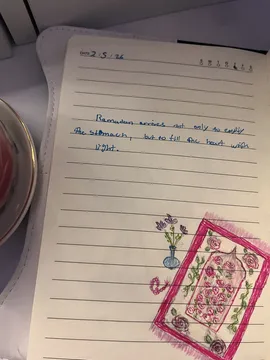 2.3.26
Ramadan arrives not only to empty
the stomach, but to fill the heart with
light.